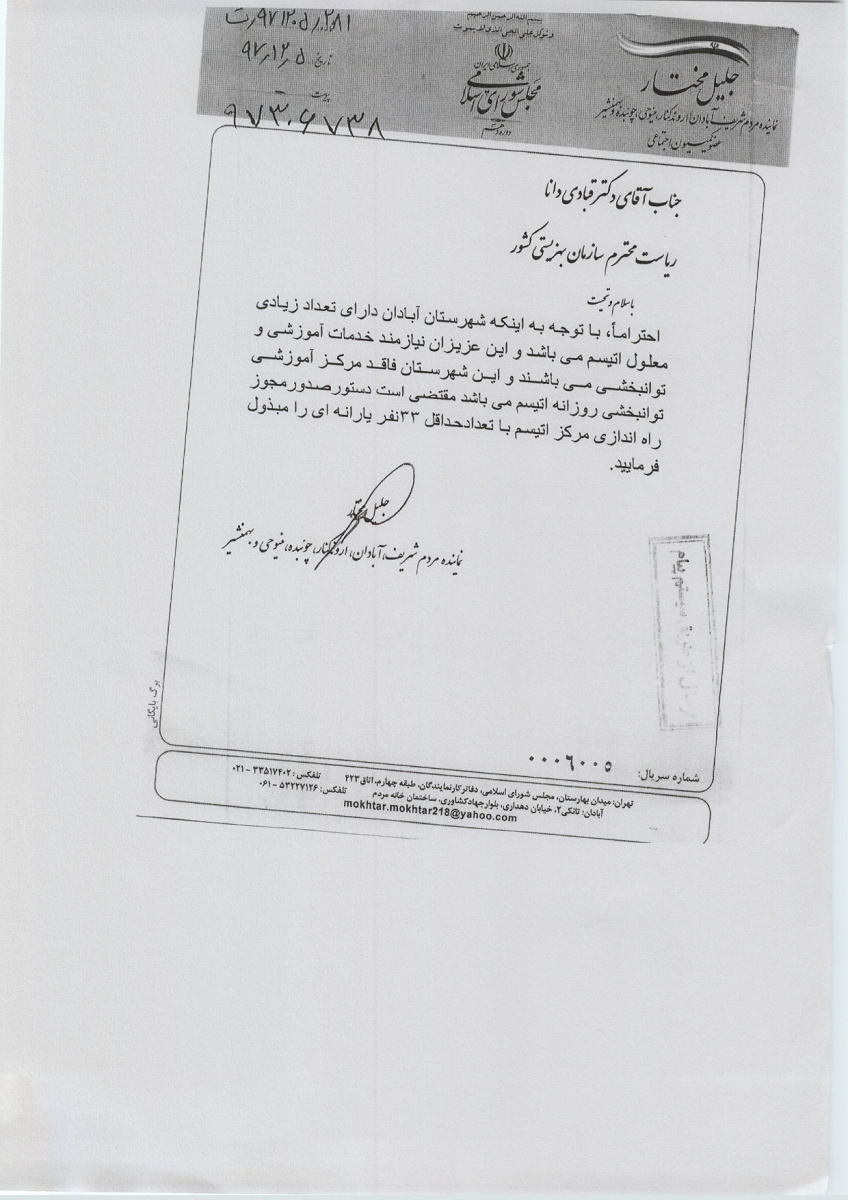 بسم الله الرحمن الرحیم
و توکل علی الحی الذی لا یموت
جمهوری اسلامی ایران
مجلس شورای اسلامی
دوره دهم
جلیل مختار
نماینده مردم شریف آبادان، اروندکنار، منیوحی، چوئبده و بهمنشیر
عضو کمیسیون اجتماعی
تاریخ: ۹۷،۱۲،۵
پیوست:
۹۷۳۰۶۷۳۸
جناب آقای دکتر قبادی دانا
ریاست محترم سازمان بهزیستی کشور
باسلام و تحیت
احتراماً، با توجه به اینکه شهرستان آبادان دارای تعداد زیادی
معلول اتیسم می باشد و این عزیزان نیازمند خدمات آموزشی و
توانبخشی می باشند و این شهرستان فاقد مرکز آموزشی
توانبخشی روزانه اتیسم می باشد مقتضی است دستورصدورمجوز
راه اندازی مرکز اتیسم با تعدادحداقل ۳۳نفر یارانه ای را مبذول
فرمایید.
جلیل مختار
نماینده مردم شریف آبادان، اروندکنار، چوئبده، منیوحی و بهمنشیر
ارسال از طریق سیستم پیام
برگ بایگانی
شماره سریال: ۰۰۰۶۰۰۵
تهران: میدان بهارستان، مجلس شورای اسلامی، دفاتر کارنمایندگان، طبقه چهارم، اتاق۴۲۳ تلفکس: ۳۳۵۱۷۴۰۲ - ۰۲۱
آبادان: تانکی۲، خیابان دهداری، بلوارجهادکشاورزی، ساختمان خانه مردم تلفکس: ۵۳۲۲۷۱۲۶ - ۰۶۱
mokhtar.mokhtar218@yahoo.com